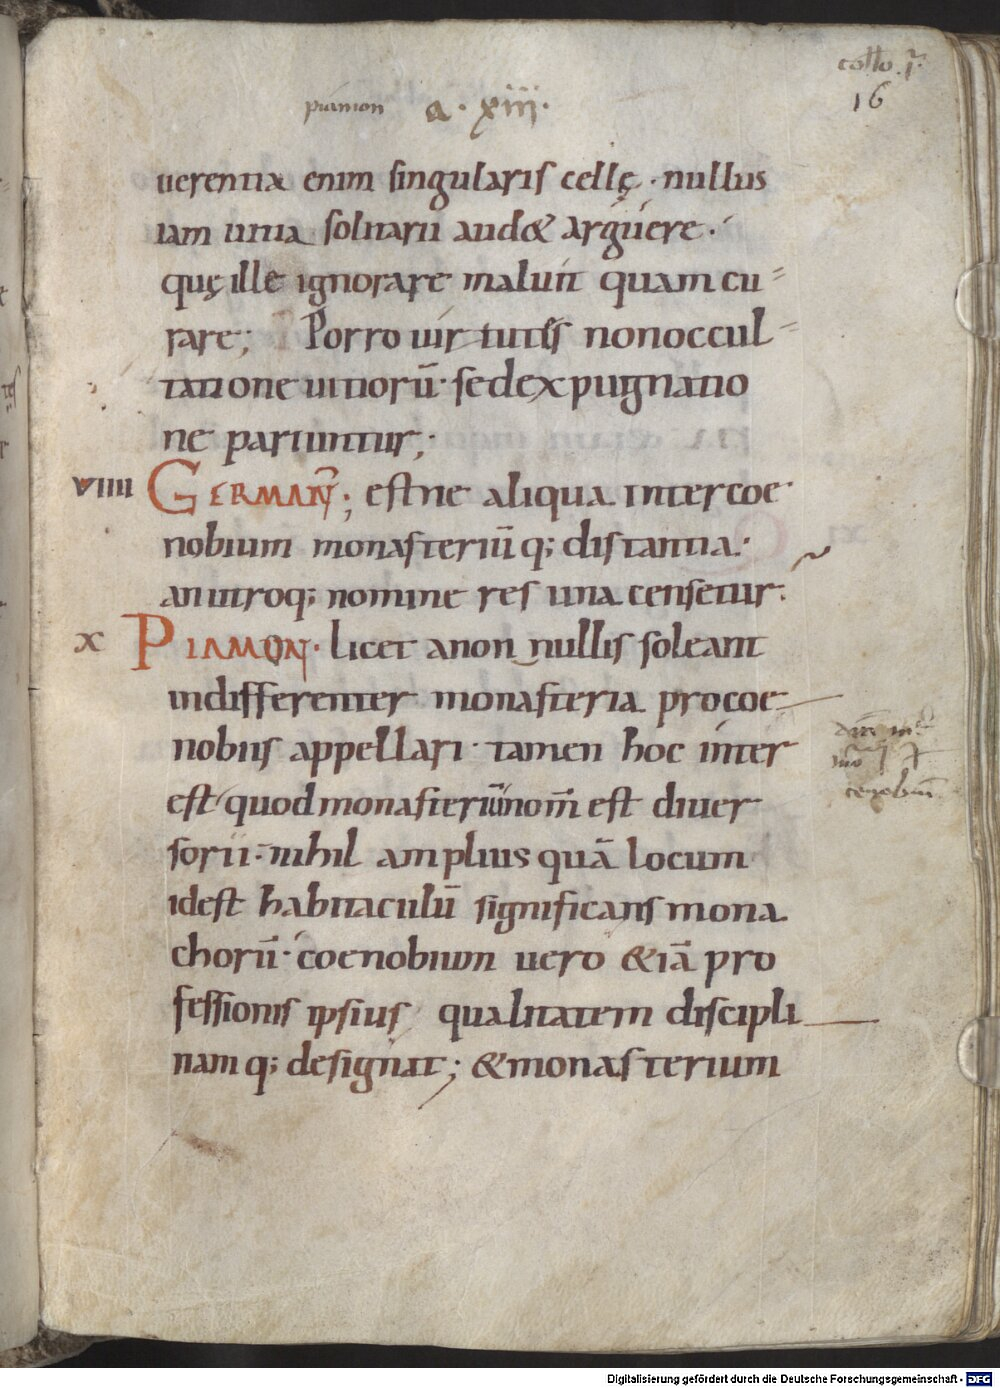 collo. i.
16
piamon a. xiii.
uerentia enim singularis cellę. nullus
iam uitia solitarii aud& arguere.
quę ille ignorare maluit quam cu-
rare; Porro uirtutes non occul-
tatione uitiorū. sed expugnatio
ne pariuntur;
VIIII GERMAN̄; estne aliqua inter coe
nobium monasteriū q; distantia.
an utroq; nomine res una censetur.
X PIAMON. licet a non nullis soleant
indifferenter monasteria pro coe
nobiis appellari. tamen hoc inter
est quod monasteriū nom̄ est diuer
sorii. nihil amplius quā locum
idest habitaculū significans mona
chorū. coenobium uero &iā pro
fessionis ipsius qualitatem discipli
nam q; designat; & monasterium
cenobiū
Digitalisierung gefördert durch die Deutsche Forschungsgemeinschaft - DFG